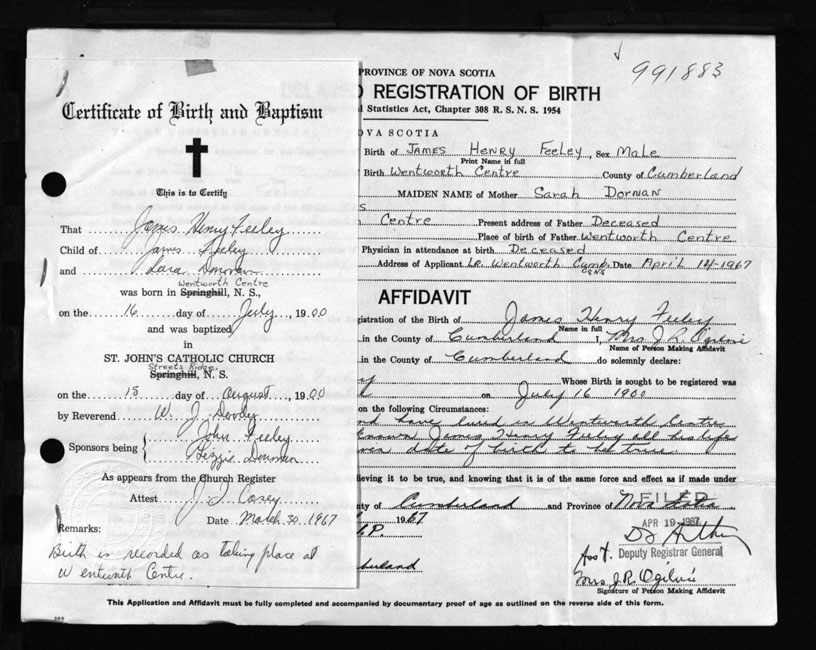 991883
Certificate of Birth and Baptism
This is to Certify
That James Henry Feeley
Child of James Feeley
and Sara Donovan
Wentworth Centre
was born in Springhill, N. S.,
on the 16 day of July, 1900
and was baptized
in
ST. JOHN'S CATHOLIC CHURCH
Streets Ridge
Springhill, N. S.
on the 15 day of August, 1900
by Reverend W. J. Doody
Sponsors being { John Feeley
Lizzie Donovan
As appears from the Church Register
Attest J. T. Casey
Date March 30, 1967
Remarks:
Birth is recorded as taking place at
Wentworth Centre.
PROVINCE OF NOVA SCOTIA
REGISTRATION OF BIRTH
Statistics Act, Chapter 308 R. S. N. S. 1954
OVA SCOTIA
Birth of JAMES HENRY Feeley, Sex Male
Print Name in full
Birth Wentworth Centre County of Cumberland
MAIDEN NAME of Mother Sarah Dorman
Centre Present address of Father Deceased
Place of birth of Father Wentworth Centre
Physician in attendance at birth Deceased
Address of Applicant Wentworth Cumb. Date April 14-1967
NS
AFFIDAVIT
istration of the Birth of James Henry Feeley
Name in full
in the County of Cumberland I, Mrs J. R. Ogilvie
Name of Person Making Affidavit
in the County of Cumberland do solemnly declare:
Whose Birth is sought to be registered was
on July 16 1900
on the following Circumstances:
have lived in Wentworth Centre
known James Henry Feeley all his life
date of birth to be true.
lieving it to be true, and knowing that it is of the same force and effect as if made under
ty of Cumberland and Province of Nova Scotia
FILED
1967
APR 19 1967
Asst. Deputy Registrar General
berland
Mrs J.R. Ogilvie
Signature of Person Making Affidavit
This Application and Affidavit must be fully completed and accompanied by documentary proof of age as outlined on the reverse side of this form.